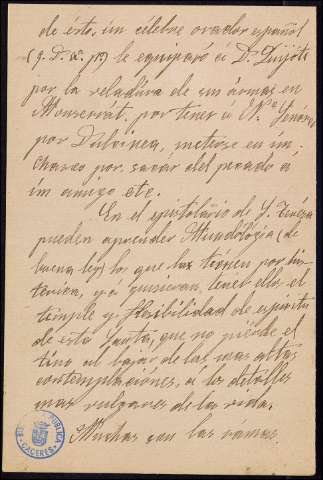 de ésto, un célebre orador español
(q. D. w. p.) le equiparó a D. Quijote
por la veladura de sus armas en
Monserrát, por tener a Nª Señora
por Dulcinea, meterse en un
charco por sacar del pecado a
un amigo etc.
En el epistolario de S. Teresa
pueden aprender Mundología (de
buena ley) los que la tienen por
y a quisieran tener ella el
temple y flexibilidad de espíritu
de esta Santa, que no pierde el
tino al bajar de las mas altas
contemplaciones, a los detalles
mas vulgares de la vida.
Muchas son las ramas
PUBLICA
CACERES